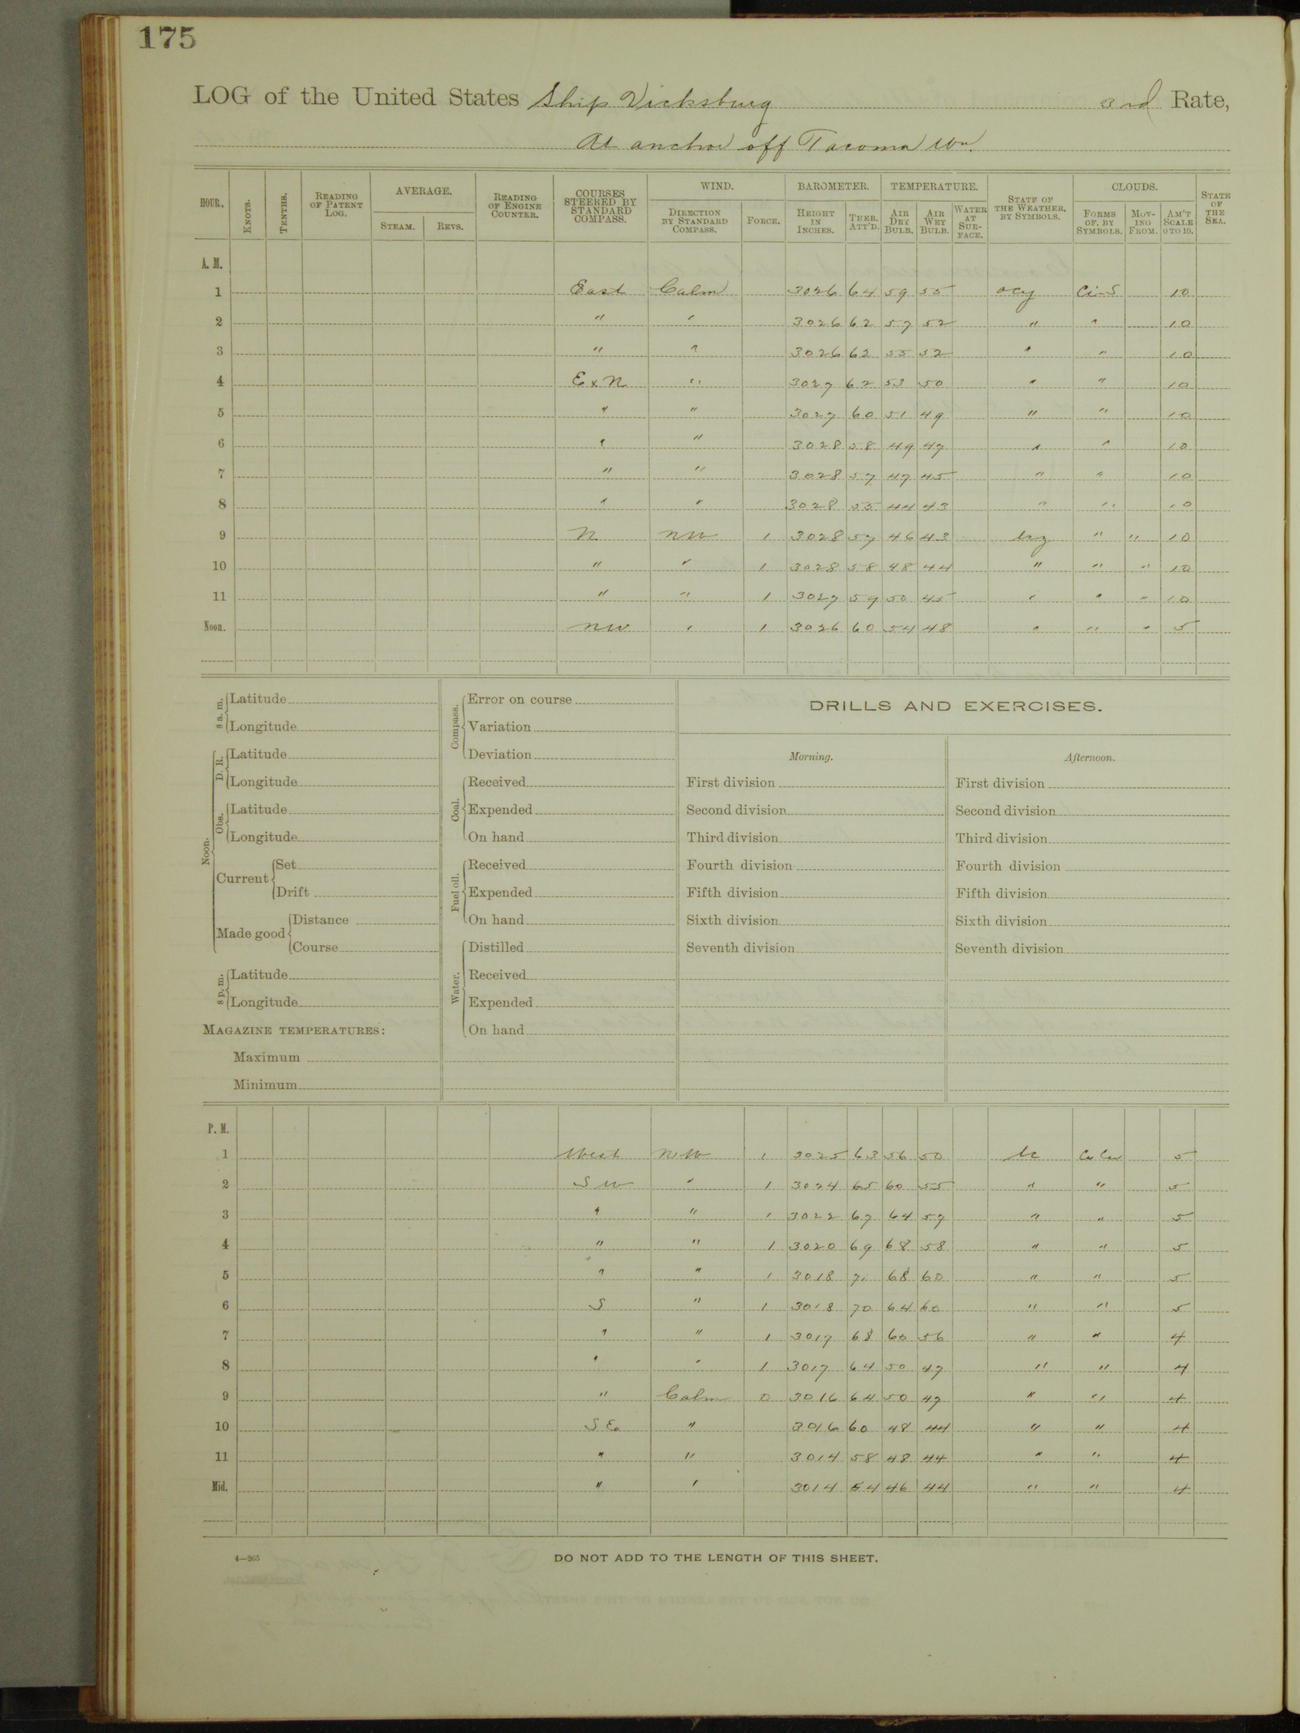 175
LOG of the United States Ship Vicksburg 3rd Rate,
At anchor off Tacoma Wn.
HOUR. KNOTS. TENTHS. READING OF PATENT LOG. AVERAGE. STEAM. REVS. READING OF ENGINE COUNTER. COURSES STEERED BY STANDARD COMPASS. WIND. DIRECTION BY STANDARD COMPASS. FORCE. BAROMETER. HEIGHT IN INCHES. THER. ATT'D. TEMPERATURE. AIR DRY BULB. AIR WET BULB. WATER AT SURFACE. STATE OF THE WEATHER, BY SYMBOLS. CLOUDS. FORMS OF, BY SYMBOLS. MOVING FROM. AM'T SCALE 0 TO 10. STATE OF THE SEA.
A. M.
1 East Calm 3026 64 59 55 ocy Ci-S 10
2 " " 3026 62 57 52 " " 10
3 " " 3026 62 55 52 " " 10
4 ExN " 3027 62 53 50 " " 10
5 " " 3027 60 51 49 " " 10
6 " " 3028 58 49 47 " " 10
7 " " 3028 57 47 45 " " 10
8 " " 3028 55 44 43 " " 10
9 N NW 1 3028 57 46 43 " " 10
10 " " 1 3028 58 48 44 " " " 10
11 " " 1 3027 59 50 45 " " " 10
Noon. NW " 1 3026 60 54 48 " " " 5
8 a. m. Latitude
Longitude
Noon. D. R. Latitude
Longitude
Obs. Latitude
Longitude
Current Set
Drift
Made good Distance
Course
8 p. m. Latitude
Longitude
MAGAZINE TEMPERATURES:
Maximum
Minimum
Compass. Error on course
Variation
Deviation
Coal. Received
Expended
On hand
Fuel oil. Received
Expended
On hand
Water. Distilled
Received
Expended
On hand
DRILLS AND EXERCISES.
Morning. Afternoon.
First division First division
Second division Second division
Third division Third division
Fourth division Fourth division
Fifth division Fifth division
Sixth division Sixth division
Seventh division Seventh division
P. M.
1 West NW 1 3025 63 56 50 bc Cu 5
2 SW " 1 3024 65 60 55 " " 5
3 " " 1 3022 67 64 57 " " 5
4 " " 1 3020 69 68 58 " " 5
5 " " 1 3018 71 68 60 " " 5
6 S " 1 3018 70 64 60 " " 5
7 " " 1 3017 68 60 56 " " 4
8 " " 1 3017 64 50 47 " " 4
9 " Calm 0 3016 64 50 47 " " 4
10 SE " 3016 60 48 44 " " 4
11 " " 3014 58 48 44 " " 4
Mid. " " 3014 54 46 44 " " 4
4—265
DO NOT ADD TO THE LENGTH OF THIS SHEET.